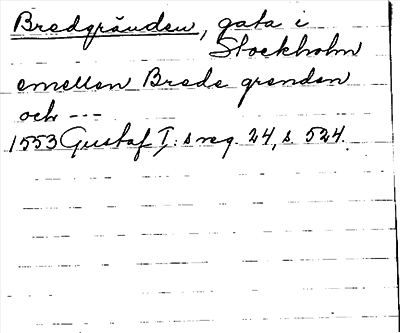 Bredgränden, gata i
Stockholm
emellen Brede grenden
och ---
1553 Gustaf I:s reg. 24, s. 524.